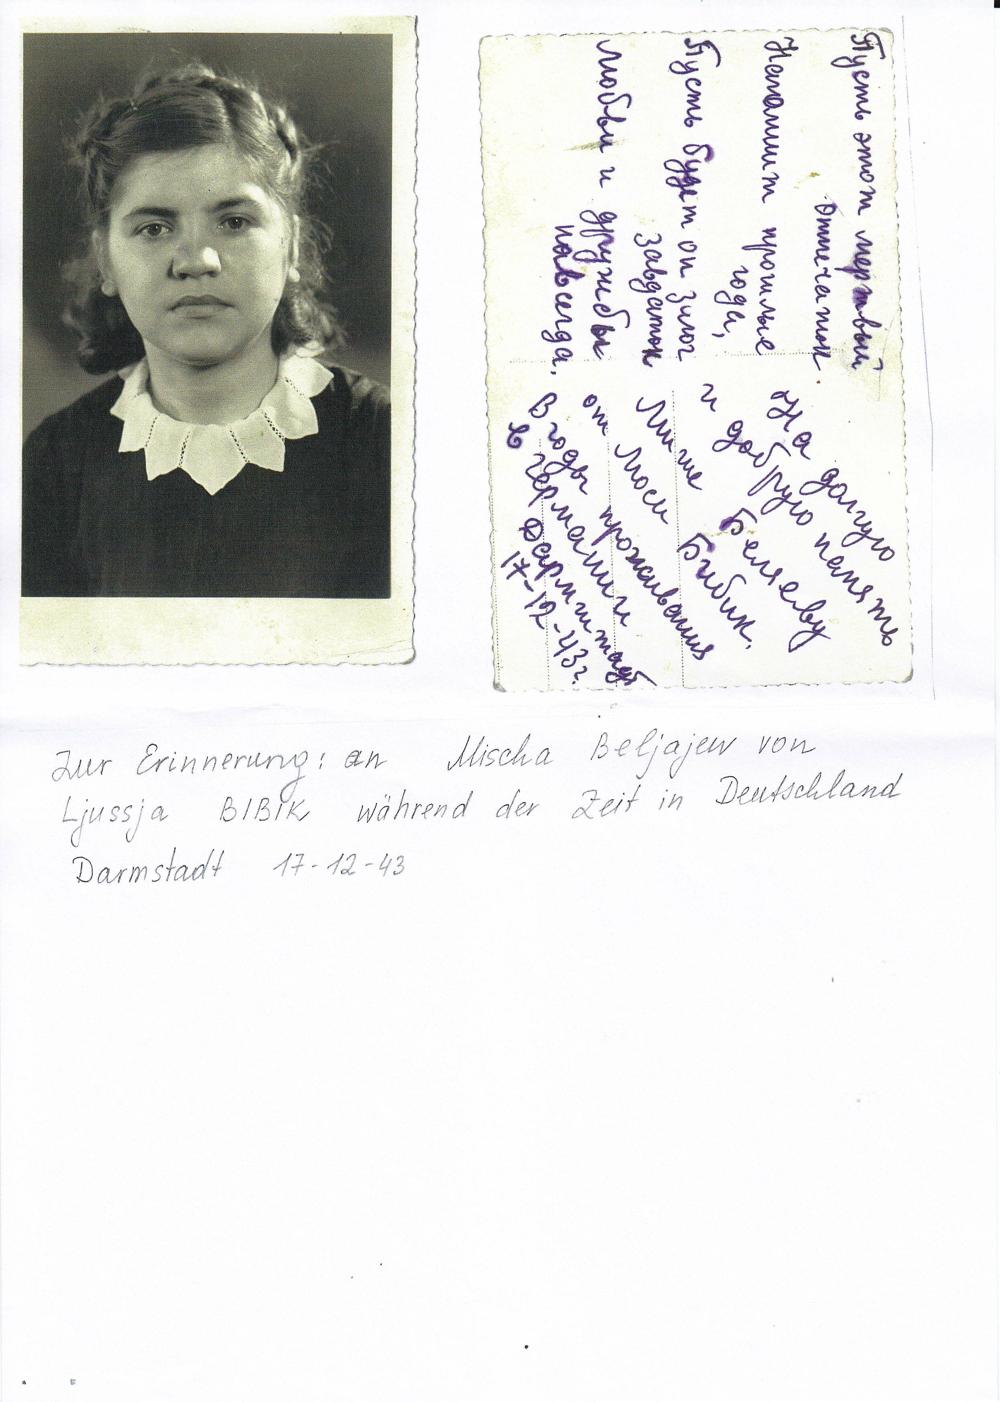 Пусть этот мертвый
отпечаток
Напомнит прошлые
года,
Пусть будет он залог
завдаток
Любви и дружбы
навсегда.
На долгую
и добрую память
Мише Беляеву
от Люси Бибик.
В годы проживания
в Германии
Дармштадт
17-12-43г.
Zur Erinnerung: an Mischa Beljajew von
Ljussja BIBIK während der Zeit in Deutschland
Darmstadt 17-12-43